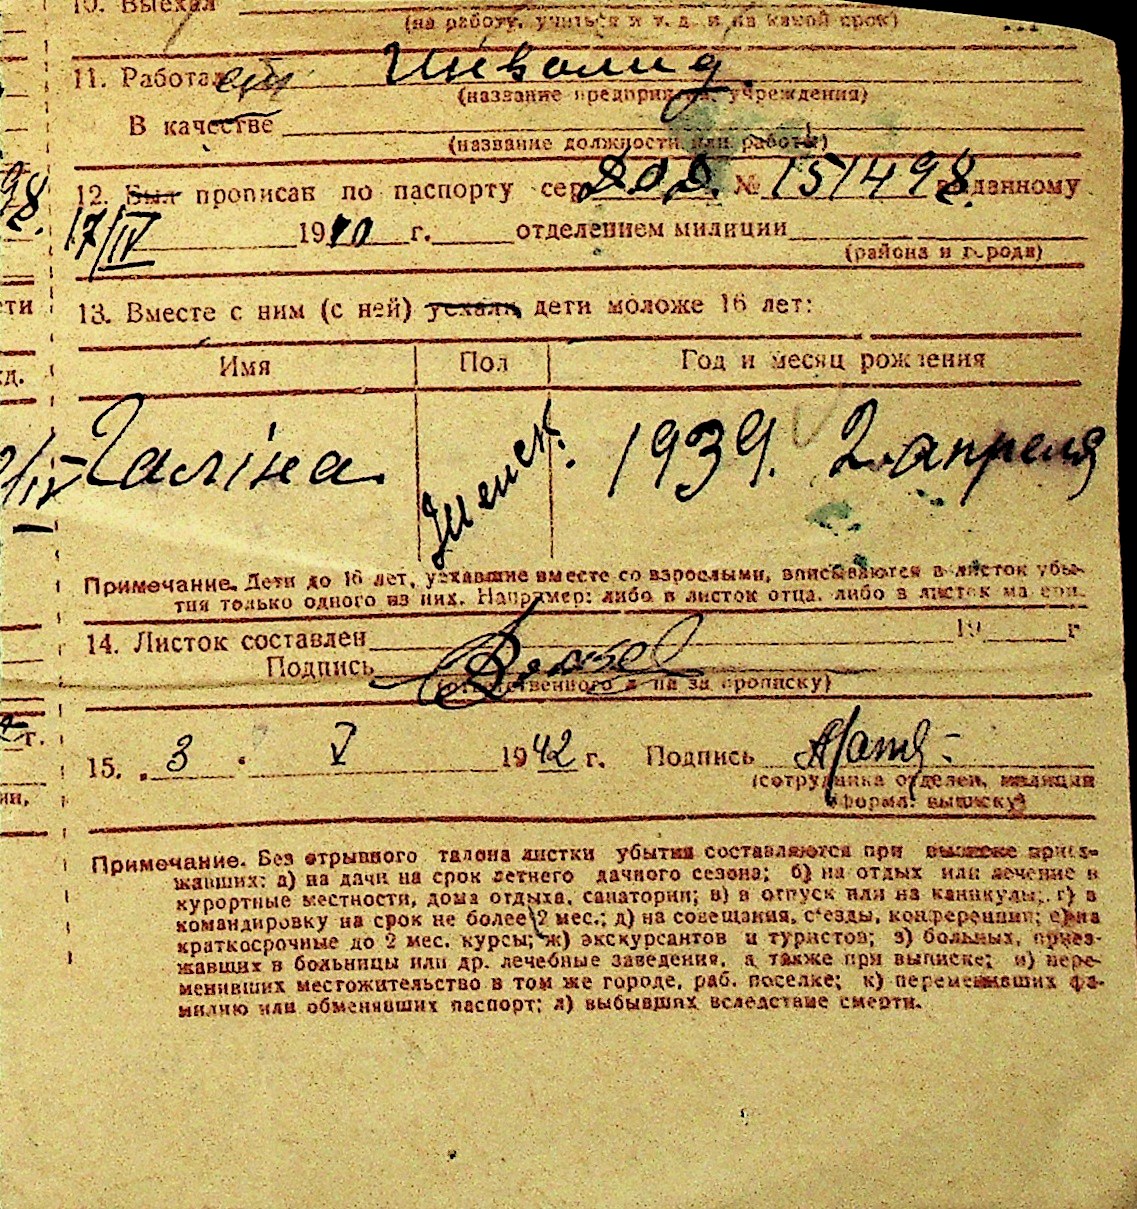 10. Выехал
(на работу, учиться и т. д. и на какой срок)
11. Работает Инволид
(название предприятия, учреждения)
В качестве
(название должности или работы)
98. 12. Был прописан по паспорту сер. № 151498. выданному
17/IV 1940 г. отделением милиции
(района и города)
ети 13. Вместе с ним (с ней) уехали дети моложе 16 лет:
жд. Имя Пол Год и месяц рождения
/IV Галіна. женск. 1939. 2 апреля
Примечание. Дети до 16 лет, уехавшие вместе со взрослыми, вписываются в листок убы-
тия только одного из них. Например: либо в листок отца, либо в листок матери.
14. Листок составлен 19 г
Подпись
(ответственного л-ца за прописку)
г. 15. 3 . V 1942 г. Подпись
(сотрудника отделен. милиции
ии, оформл. выписку)
Примечание. Без отрывного талона листки убытия составляются при выписке приез-
жавших: а) на дачи на срок летнего дачного сезона; б) на отдых или лечение в
курортные местности, дома отдыха, санатории; в) в отпуск или на каникулы; г) в
командировку на срок не более 2 мес.; д) на совещания, с'езды, конференции; е) на
краткосрочные до 2 мес. курсы; ж) экскурсантов и туристов; з) больных, приез-
жавших в больницы или др. лечебные заведения, а также при выписке; и) пере-
менивших местожительство в том же городе, раб. поселке; к) переменивших фа-
милию или обменявших паспорт; л) выбывших вследствие смерти.